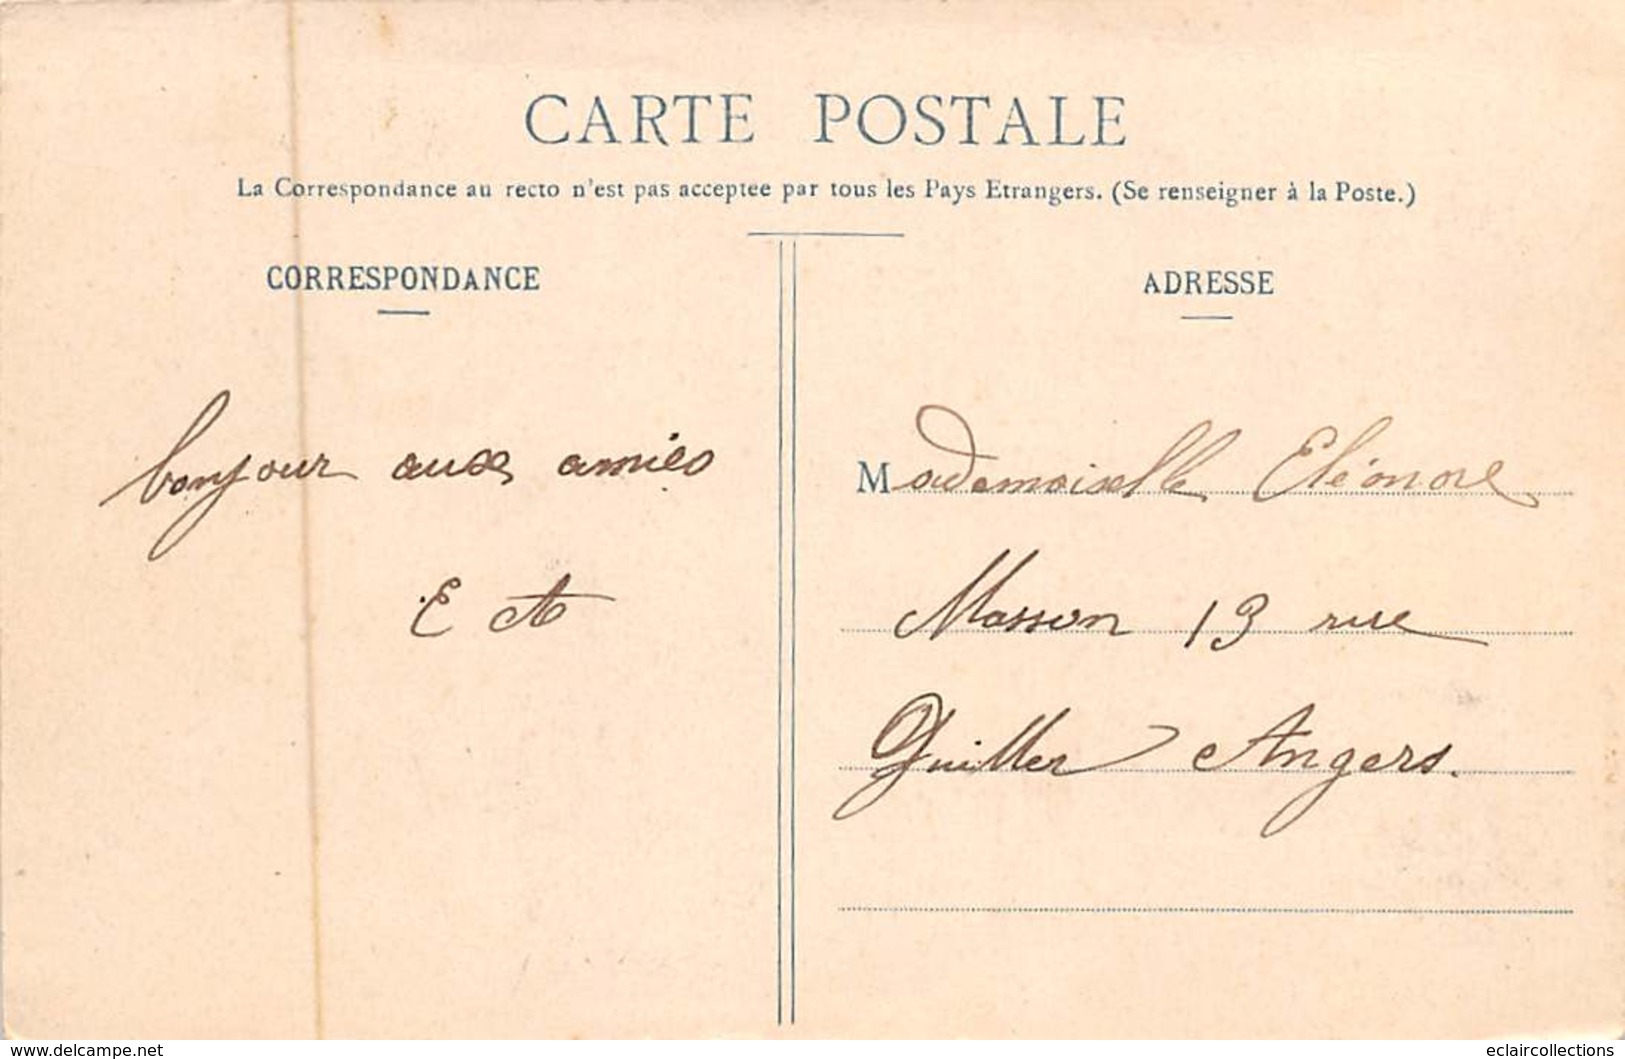 CARTE POSTALE
La Correspondance au recto n'est pas acceptee par tous les Pays Etrangers. (Se renseigner à la Poste.)
CORRESPONDANCE
bonjour aux amies
E A
ADRESSE
Mademoiselle Eléonore
Masson 13 rue
Quiller Angers.
www.delcampe.net
eclaircollections